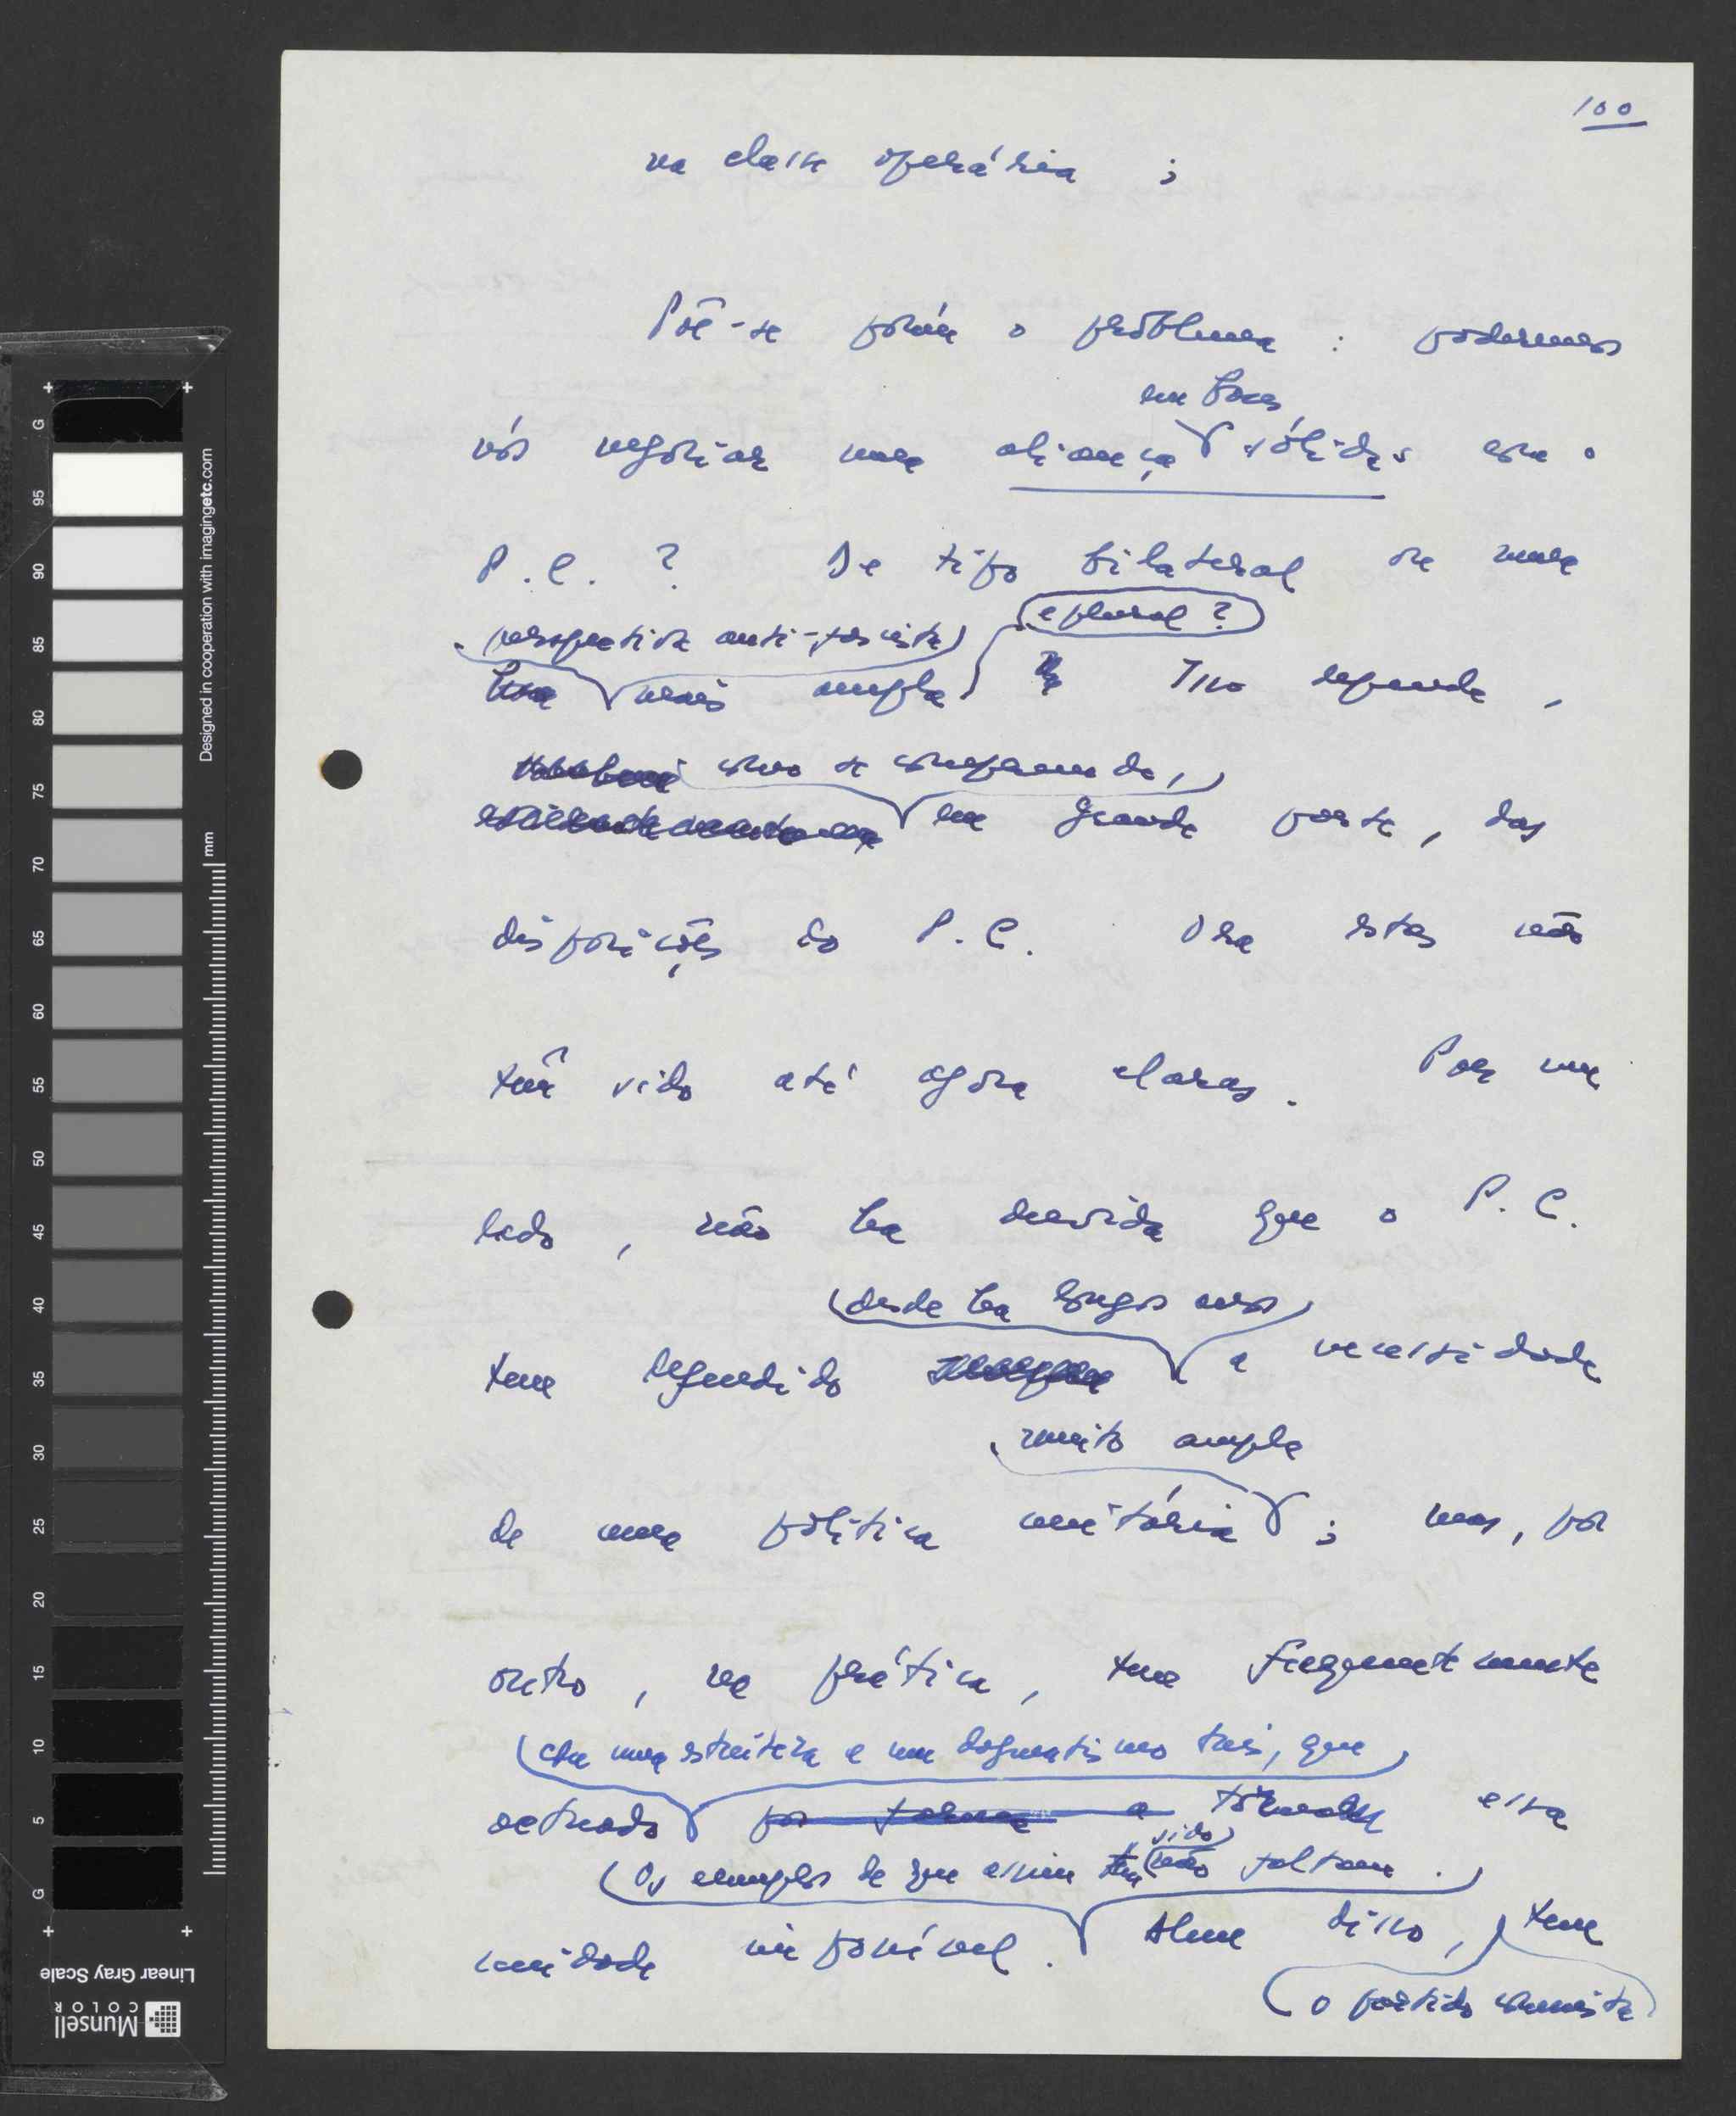 100
na classe operária ;
Põe-se porém o problema : poderemos
em bases
nós negociar uma aliança sólidas com o
P.C. ? De tipo bilateral ou numa
perspectiva anti-fascista e plural ?
mais ampla Isso depende,
como se compreende,
em grande parte, das
disposições do P.C. Ora estas não
têm sido até agora claras. Por um
lado, não ha duvida que o P.C.
(desde ha longos anos)
tem defendido a necessidade
muito ampla
de uma politica unitária ; mas, por
outro, na prática, tem frequentemente
(com uma estreiteza e um dogmatismo tais, que
actuado por forma a tornam essa
sido
(Os exemplos de que assim tem não faltam.)
unidade impossível. Alem disso, tem
(o partido comunista)
G 95 90 85 80 75 70 65 60 55 50 45 40 35 30 25 20 15 10 5 G
mm
Designed in cooperation with imagingetc.com
Linear Gray Scale
Munsell
COLOR